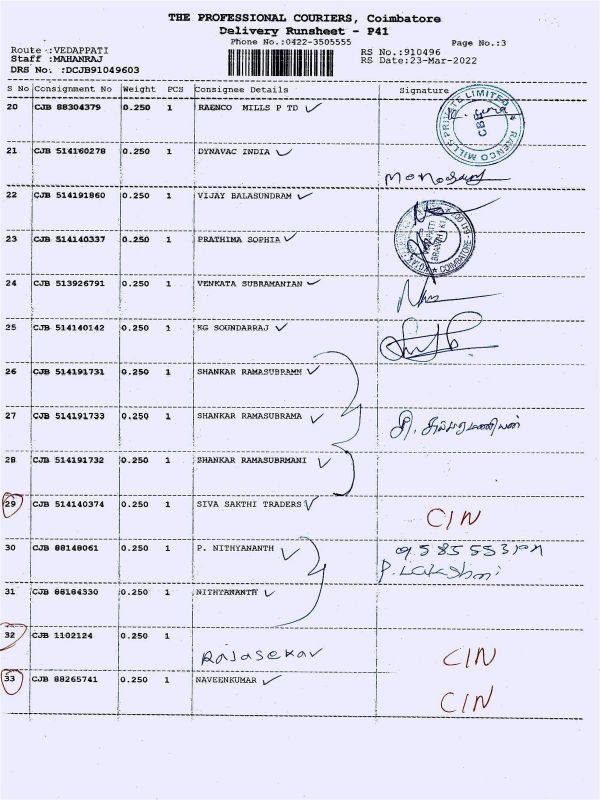 THE PROFESSIONAL COURIERS, Coimbatore
Delivery Runsheet - P41
Phone No.:0422-3505555
Page No.:3
Route :VEDAPPATI
Staff :MAHANRAJ
DRS No. :DCJB91049603
RS No.:910496
RS Date:23-Mar-2022
S No Consignment No Weight PCS Consignee Details Signature
20 CJB 88304379 0.250 1 RAENCO MILLS P TD
RAENCO MILLS PRIVATE LIMITED CBE
21 CJB 514160278 0.250 1 DYNAVAC INDIA
22 CJB 514191860 0.250 1 VIJAY BALASUNDRAM
23 CJB 514140337 0.250 1 PRATHIMA SOPHIA
24 CJB 513926791 0.250 1 VENKATA SUBRAMANIAN
25 CJB 514140142 0.250 1 KG SOUNDARRAJ
26 CJB 514191731 0.250 1 SHANKAR RAMASUBRAMN
27 CJB 514191733 0.250 1 SHANKAR RAMASUBRAMA
28 CJB 514191732 0.250 1 SHANKAR RAMASUBRMANI
29 CJB 514140374 0.250 1 SIVA SAKTHI TRADERS C/N
30 CJB 88148061 0.250 1 P. NITHYANANTH
P. Lakshmi
31 CJB 88184330 0.250 1 NITHYANANTH
32 CJB 1102124 0.250 1
Rajasekar C/N
33 CJB 88265741 0.250 1 NAVEENKUMAR C/N